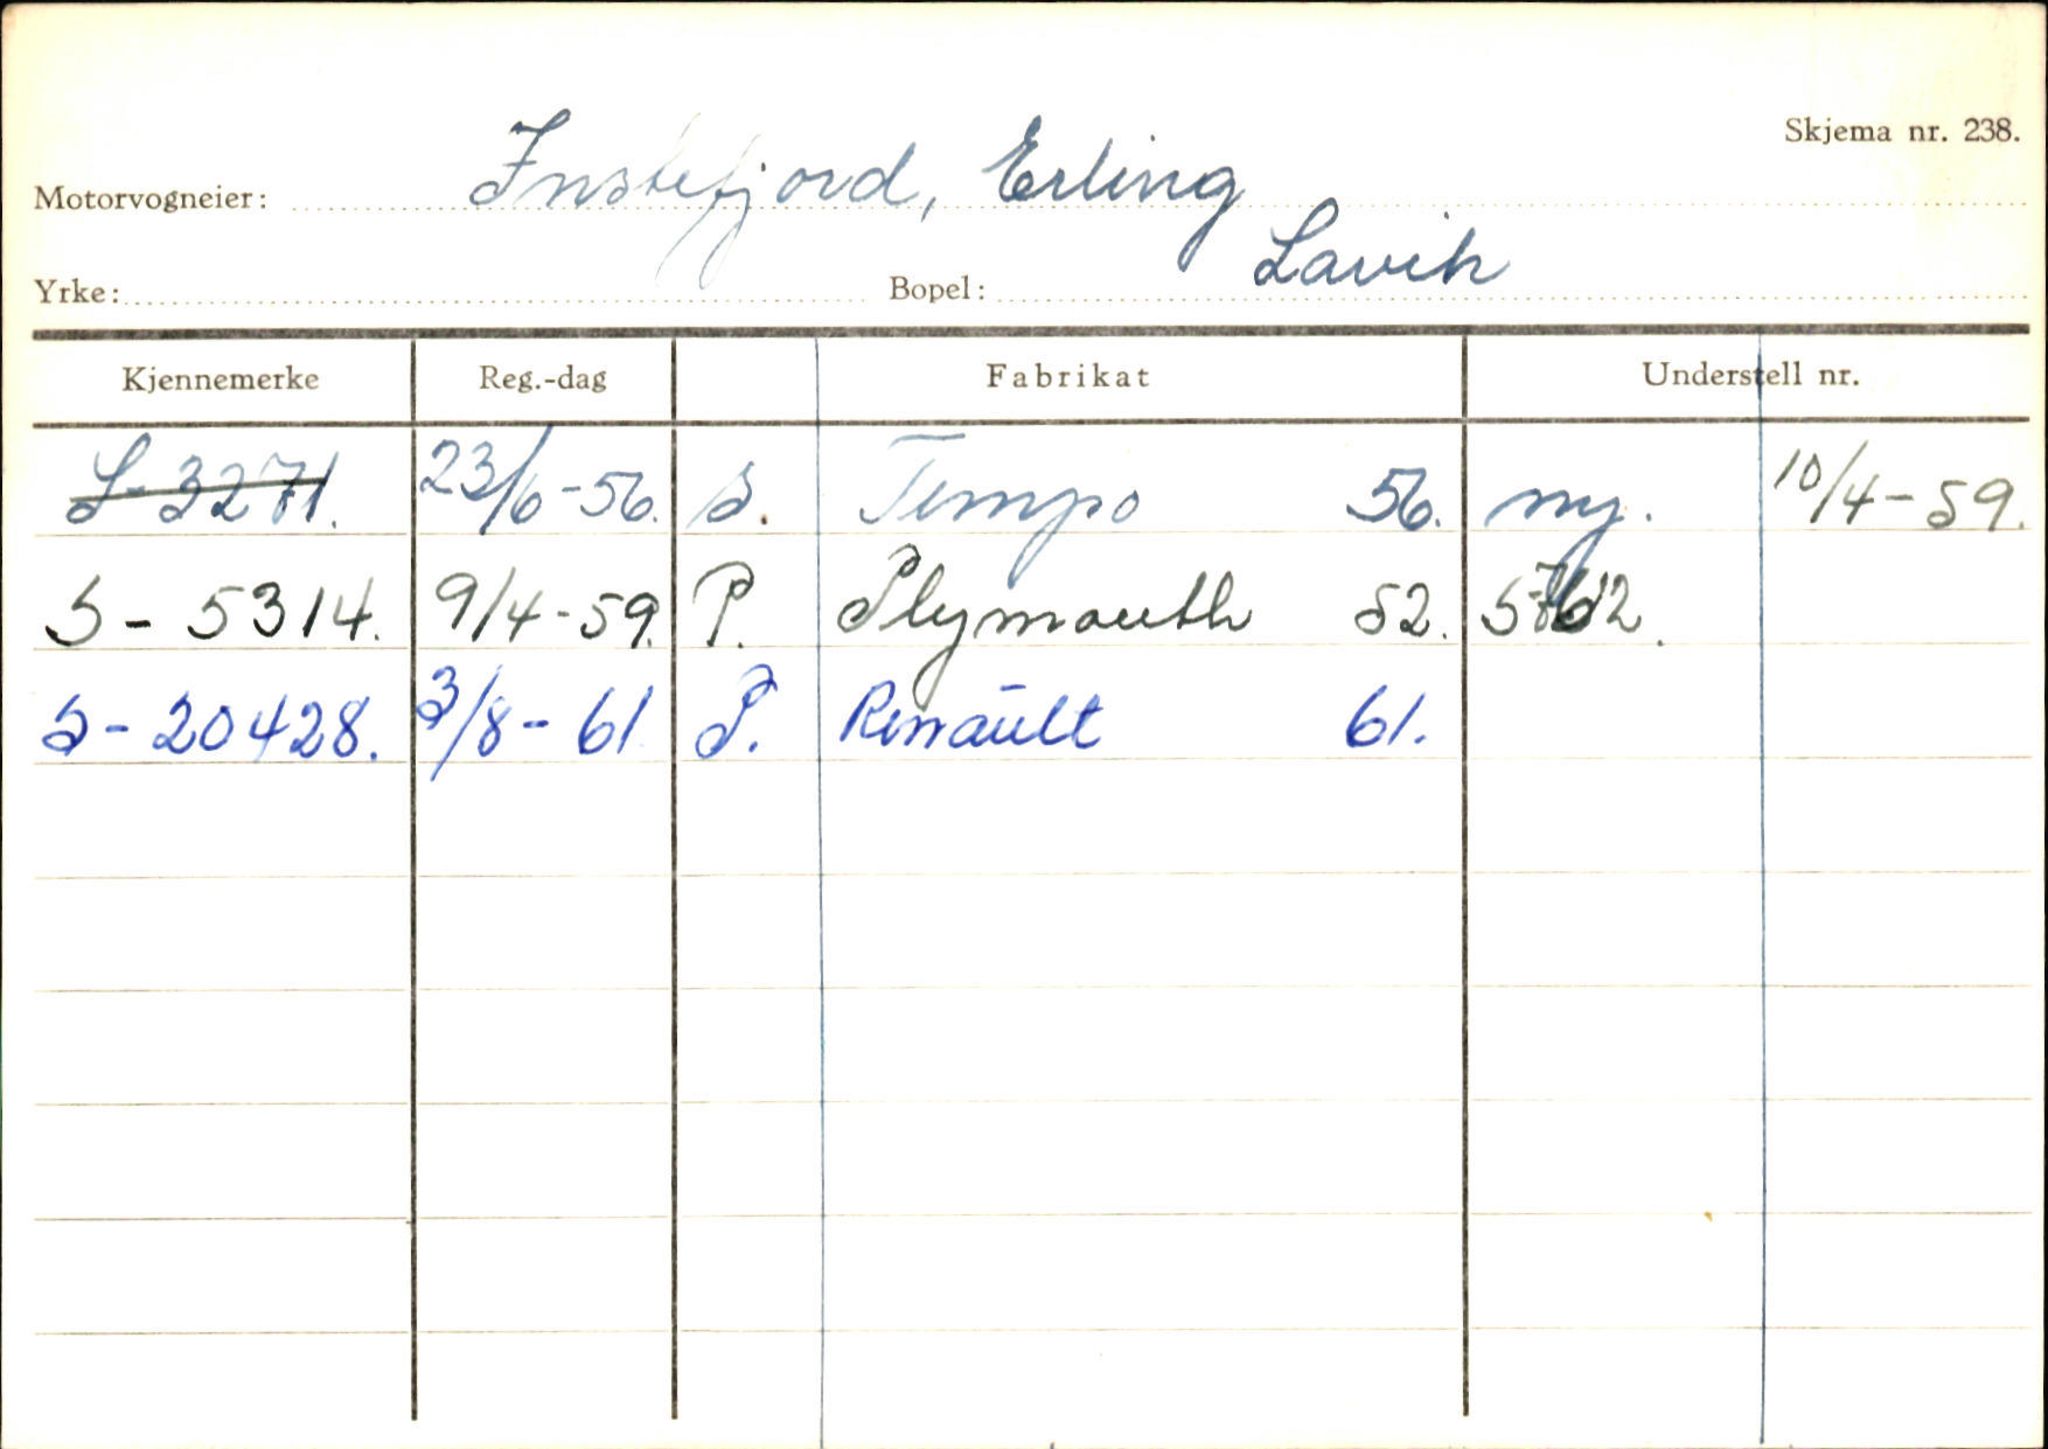 Skjema nr. 238.
Motorvogneier: Instefjord, Erling
Yrke: Bopel: Lavik
Kjennemerke Reg.-dag Fabrikat Understell nr.
S-3271. 23/6-56. S. Tempo 56. ny. 10/4-59.
S-5314. 9/4-59. P. Plymouth 52.
S-20428. 3/8-61 P. Renault 61.